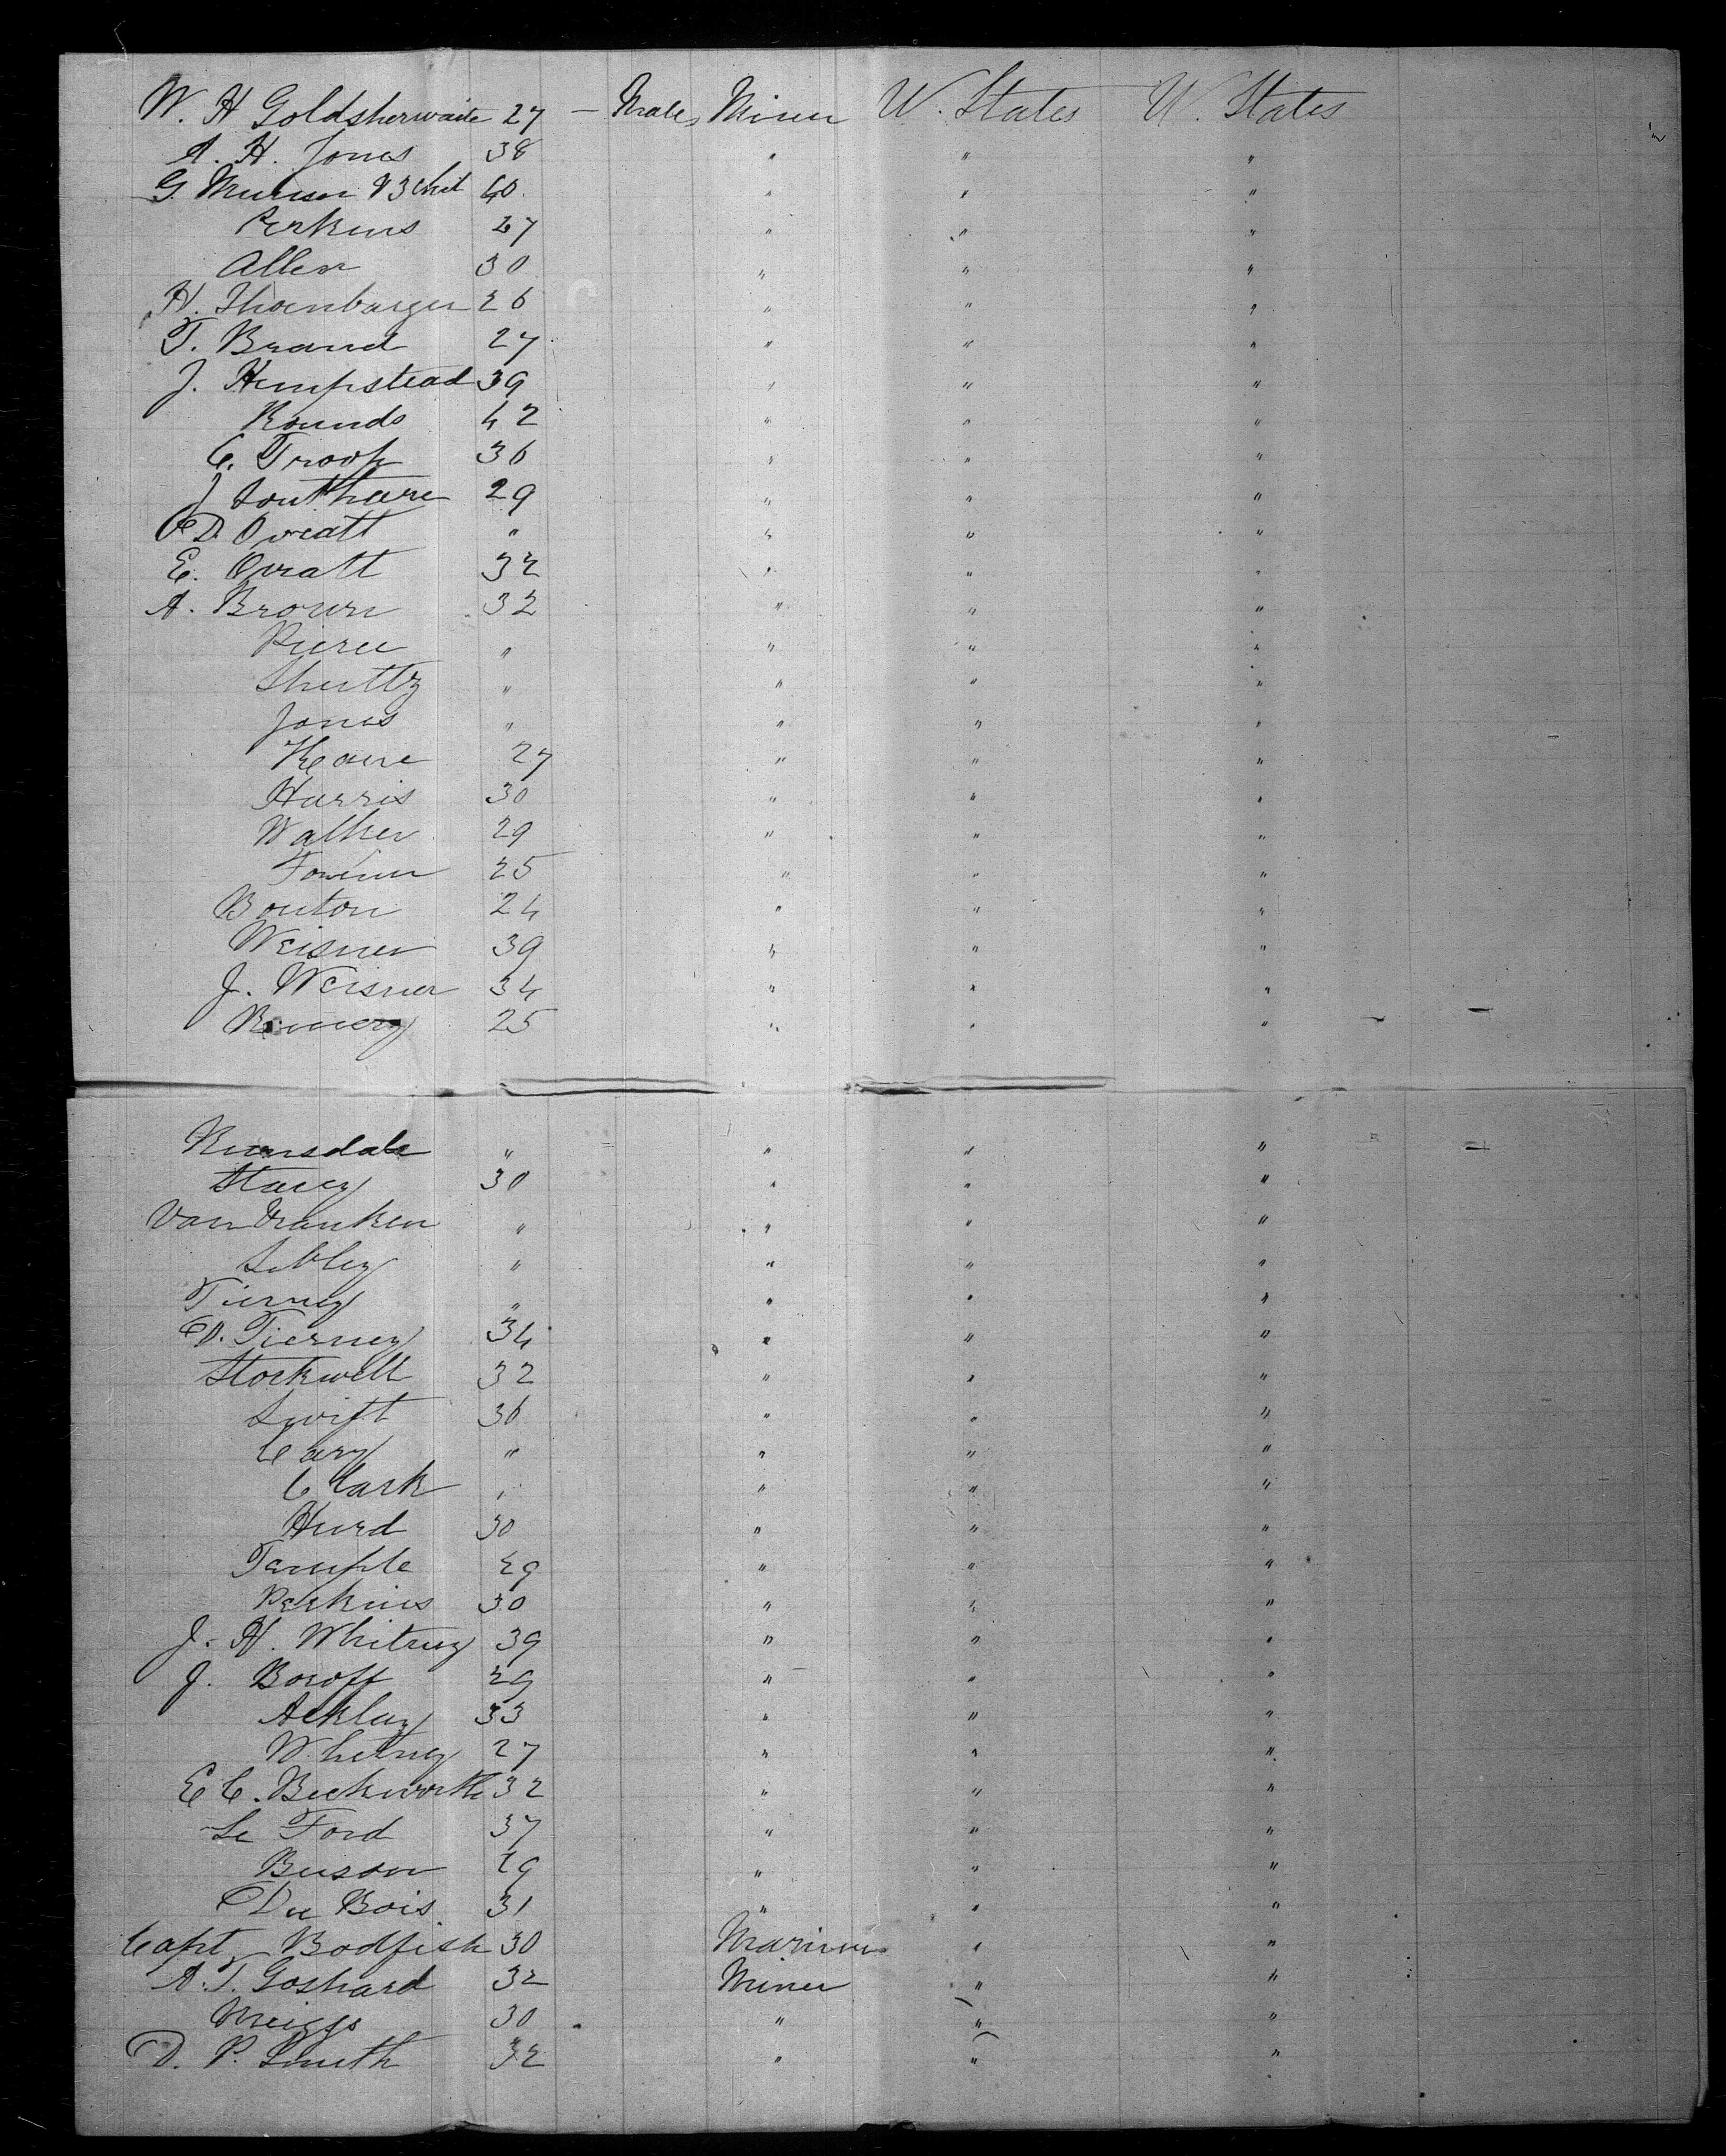 W. H Goldsherwaite 27 — Male, Miner U. States U. States
A. H. Jones 38 " " "
G. & 3 40. " " "
Perkins 27 " " "
Allen 30 " " "
H. Thornbarger 26 " " "
T. Brand 27 " " "
J. Hempstead 39 " " "
Rounds 42 " " "
C. Troop 36 " " "
J 29 " " "
" " " "
E. Ovratt 32 " " "
A. Brown 32 " " "
Pierce " " " "
Shuttz " " " "
Jones " " " "
Keane 27 " " "
Harris 30 " " "
Walker 29 " " "
25 " " "
Bouton 24 " " "
Weisner 39 " " "
J. Weisner 34 " " "
25 " " "
" " " "
Stacey 30 " " "
Van Vranken " " " "
Sibley " " " "
Tierney " " " "
D. Tierney 34 " " "
Stockwell 32 " " "
Swift 36 " " "
Cary " " " "
Clark " " " "
Hurd 30 " " "
Temple 29 " " "
Perkins 30 " " "
J. H. Whitney 39 " " "
J. Boroff 29 " " "
Ackley 33 " " "
Whitney 27 " " "
E C. Beckworth 32 " " "
Le Ford 37 " " "
29 " " "
Du Bois 31 " " "
Capt Bodfish 30 Mariner " "
A. T. Goshard 32 Miner " "
Meiggs 30 " " "
D. P. Smith 32 " " "